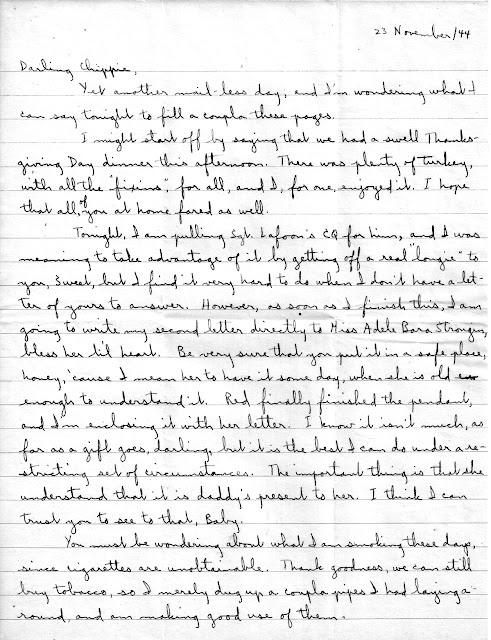 23 November/44
Darling Chippie,
Yet another mail-less day, and I'm wondering what I
can say tonight to fill a coupla these pages.
I might start off by saying that we had a swell Thanks-
giving Day dinner this afternoon. There was plenty of turkey,
with all the "fixins" for all, and I, for one, enjoyed it. I hope
that all of you at home fared as well.
Tonight, I am pulling Sgt. Lafoon's CQ for him, and I was
meaning to take advantage of it by getting off a real "longie" to
you, Sweet, but I find it very hard to do when I don't have a let-
ter of yours to answer. However, as soon as I finish this, I am
going to write my second letter directly to Miss Adele Bara Strongin,
bless her li'l heart. Be very sure that you put it in a safe place,
honey, 'cause I mean her to have it some day, when she is old
enough to understand it. Red finally finished the pendant,
and I'm enclosing it with her letter. I know it isn't much, as
far as a gift goes, darling, but it is the best I can do under a re-
stricting set of circumstances. The important thing is that she
understand that it is daddy's present to her. I think I can
trust you to see to that, Baby.
You must be wondering about what I am smoking these days,
since cigarettes are unobtainable. Thank goodness, we can still
buy tobacco, so I merely dug up a coupla pipes I had laying a-
round, and am making good use of them.